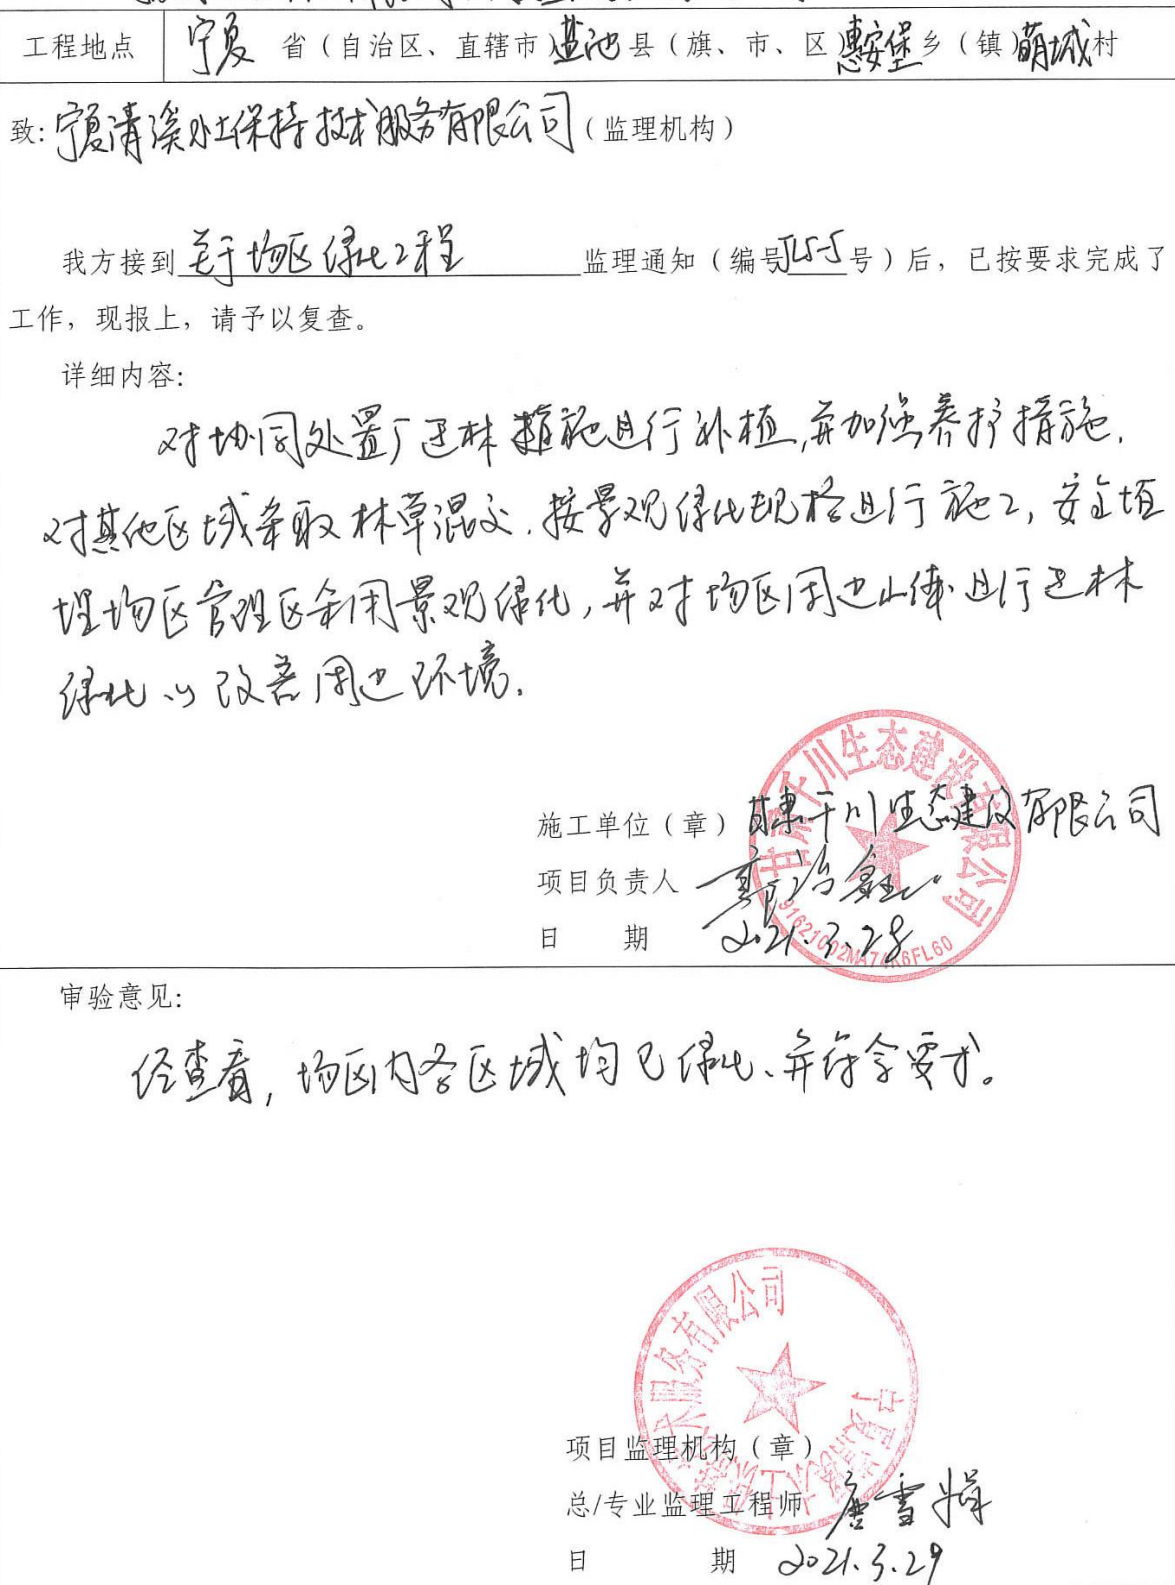 工程地点 宁夏 省（自治区、直辖市）盐池县（旗、市、区）惠安堡乡（镇）萌城村
致:宁夏清溪水土保持技术服务有限公司（监理机构）
我方接到关于场区绿化工程监理通知（编号JL5-5号）后，已按要求完成了
工作，现报上，请予以复查。
详细内容:
对协同处置厂造林措施进行补植,并加强养护措施.
对其他区域采取林草混交.按景观绿化规格进行施工,安全填
埋场区管理区采用景观绿化,并对场区周边山体进行造林
绿化以改善周边环境.
施工单位（章）甘肃千川生态建设有限公司
甘肃千川生态建设有限公司
91621002MA74K6FL60
项目负责人
日 期 2021.3.28
审验意见:
经查看,场区内各区域均已绿化、并符合要求。
宁夏清溪水土保持技术服务有限公司
项目监理机构（章）
总/专业监理工程师 唐雪
日 期 2021.3.29